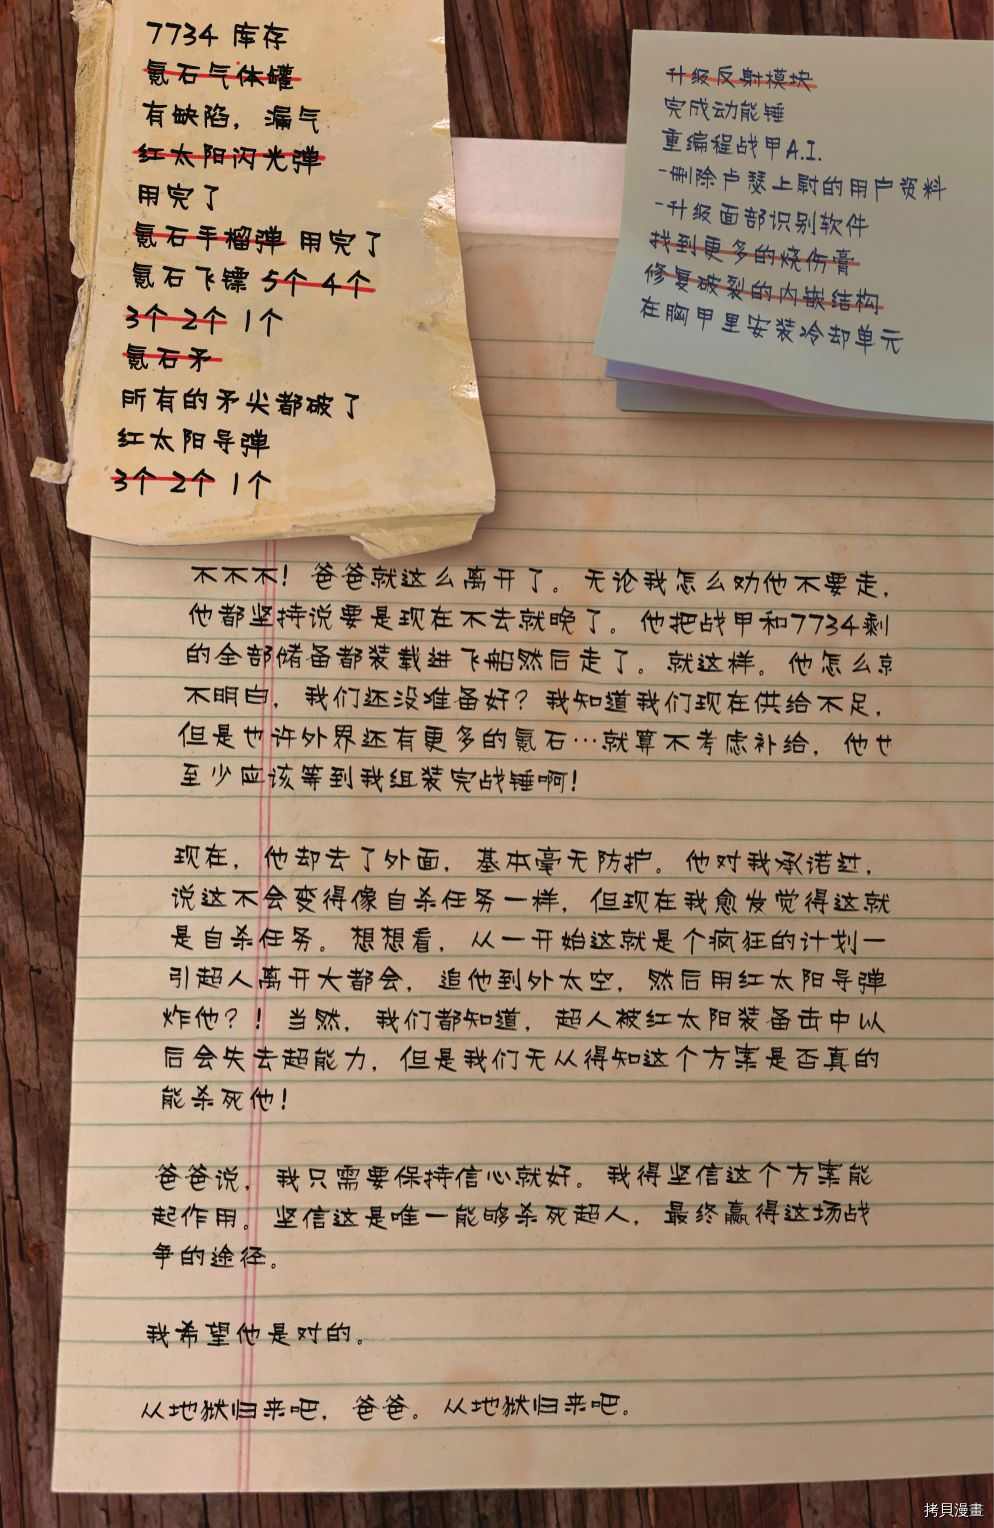 7734 库存
氪石气体罐
有缺陷，漏气
红太阳闪光弹
用完了
氪石手榴弹 用完了
氪石飞镖 5个 4个
3个 2个 1个
氪石矛
所有的矛尖都破了
红太阳导弹
3个 2个 1个
升级反射模块
完成动能锤
重编程战甲A.I.
-删除卢瑟上尉的用户资料
-升级面部识别软件
找到更多的烧伤膏
修复破裂的内嵌结构
在胸甲里安装冷却单元
不不不！爸爸就这么离开了。无论我怎么劝他不要走，
他都坚持说要是现在不去就晚了。他把战甲和7734剩
的全部储备都装载进飞船然后走了。就这样。他怎么就
不明白，我们还没准备好？我知道我们现在供给不足，
但是也许外界还有更多的氪石…就算不考虑补给，他也
至少应该等到我组装完战锤啊！
现在，他却去了外面，基本毫无防护。他对我承诺过，
说这不会变得像自杀任务一样，但现在我愈发觉得这就
是自杀任务。想想看，从一开始这就是个疯狂的计划一
引超人离开大都会，追他到外太空，然后用红太阳导弹
炸他？！当然，我们都知道，超人被红太阳装备击中以
后会失去超能力，但是我们无从得知这个方案是否真的
能杀死他！
爸爸说，我只需要保持信心就好。我得坚信这个方案能
起作用。坚信这是唯一能够杀死超人，最终赢得这场战
争的途径。
我希望他是对的。
从地狱归来吧，爸爸。从地狱归来吧。
拷貝漫畫